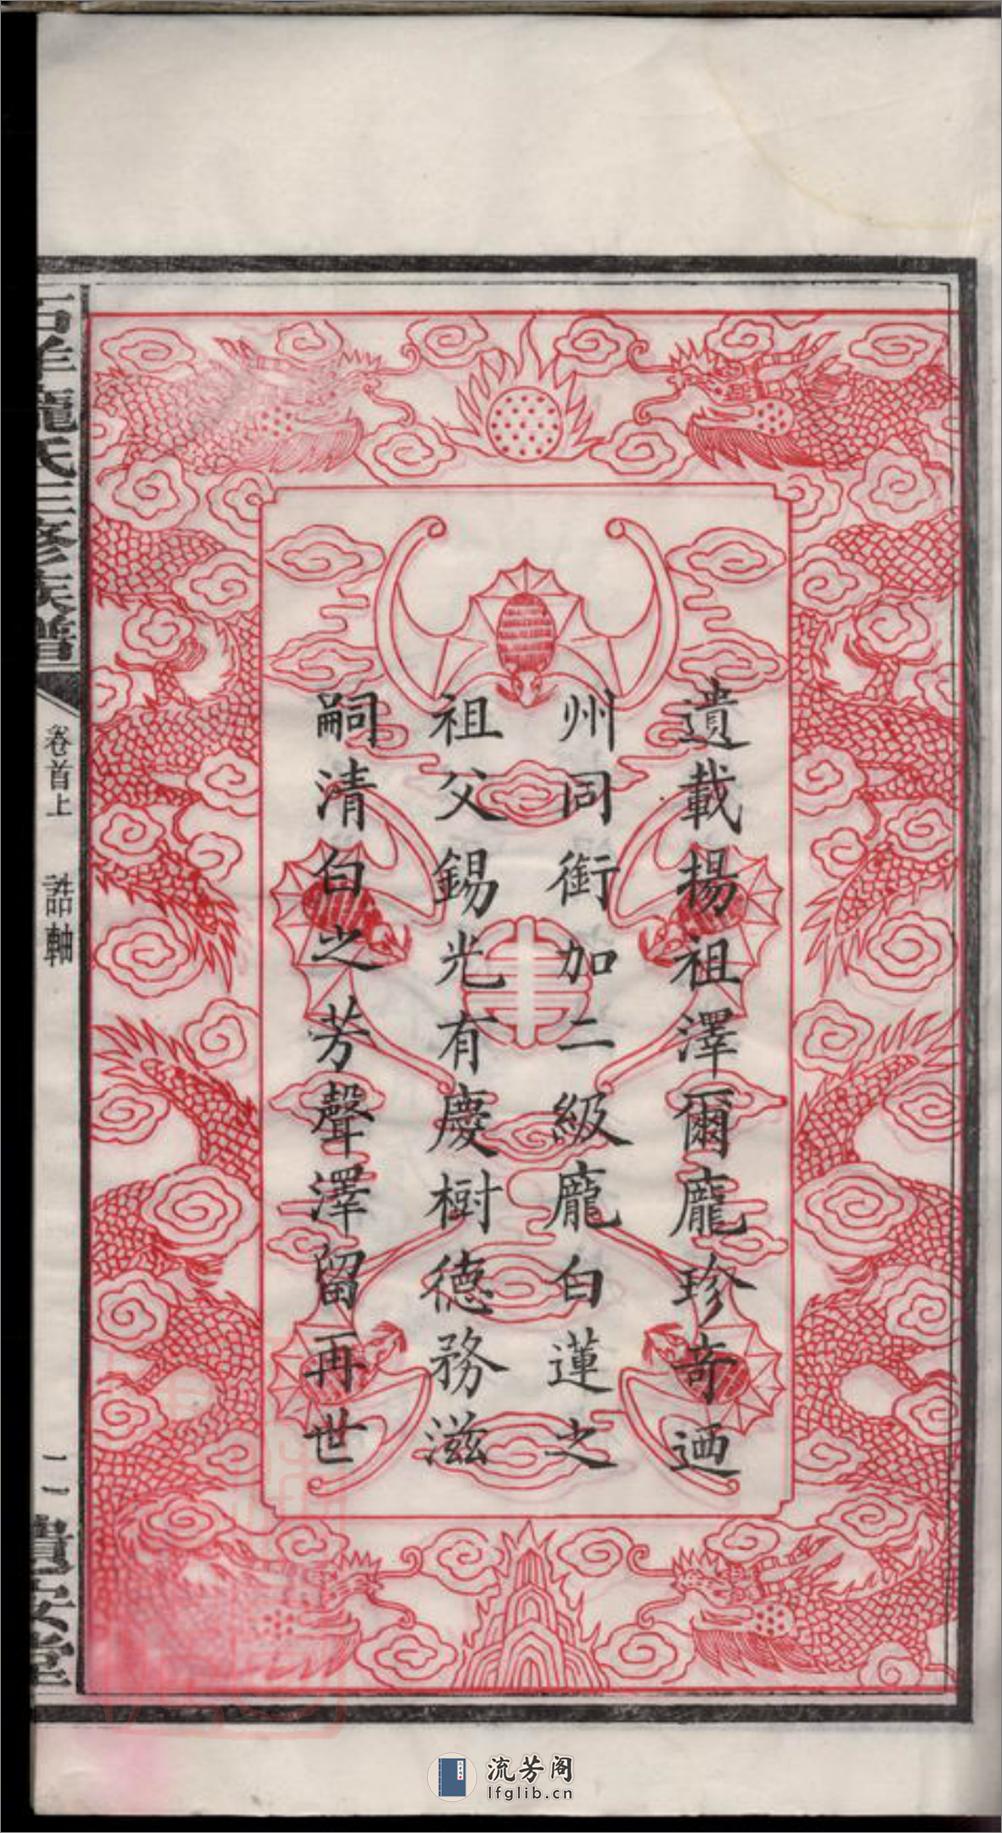 遺載揚祖澤爾龐珍奇迺
州同銜加二級龐白蓮之
祖父錫光有慶樹德務滋
嗣清白之芳聲澤留再世
龐氏三修族譜
卷首上 誥軸
二一
流芳阁
lfglib.cn